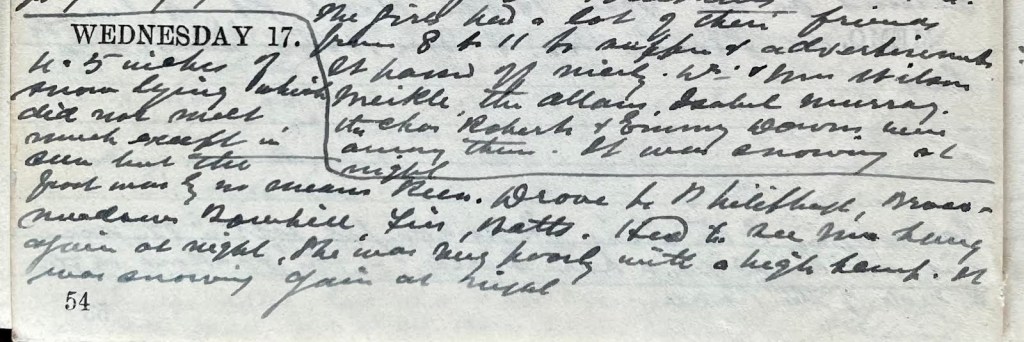 The girls had a lot of their friends
from 8 to 11 to supper & advertisements
It passed off nicely. Wm. & Mrs Wilson
Meikle, the Allans, Isobel Murray,
the Chas Roberts & Emmy Downs were
among them. It was snowing at
night
WEDNESDAY 17.
4-5 inches of
snow lying which
did not melt
much except in
sun but the
frost was by no means keen. Drove to Philiphaugh, Broad-
meadows Bowhill, Batts. Had to see Mrs
again at night, She was very poorly with a high temp. It
was snowing again at night
54